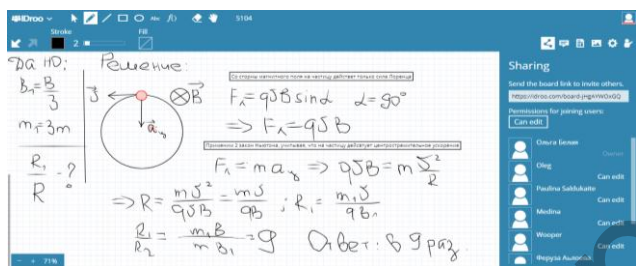 iDroo
Abc
f()
5104
Stroke
Fill
2
Дано:
Решение:
B₁=B/3
m₁=3m
R₁/R - ?
υ⃗
⊗B⃗
a⃗ц
Со стороны магнитного поля на частицу действует только сила Лоренца
Fл=qυBsinα α=90°
=> Fл=qυB
Применим 2 закон Ньютона, учитывая, что на частицу действует центростремительное ускорение
Fл=maц => qυB=m υ²/R
=> R= mυ²/qυB = mυ/qB ; R₁= m₁υ/qB₁
R₁/R₂ = m₁B/mB₁ =9 Ответ: в 9 раз.
- + 71%
Sharing
Send the board link to invite others.
Permissions for joining users:
Can edit
Ольга Белан
Owner
Oleg
Can edit
Paulina Saldukaite
Can edit
Medina
Can edit
Wooper
Can edit
Феруза